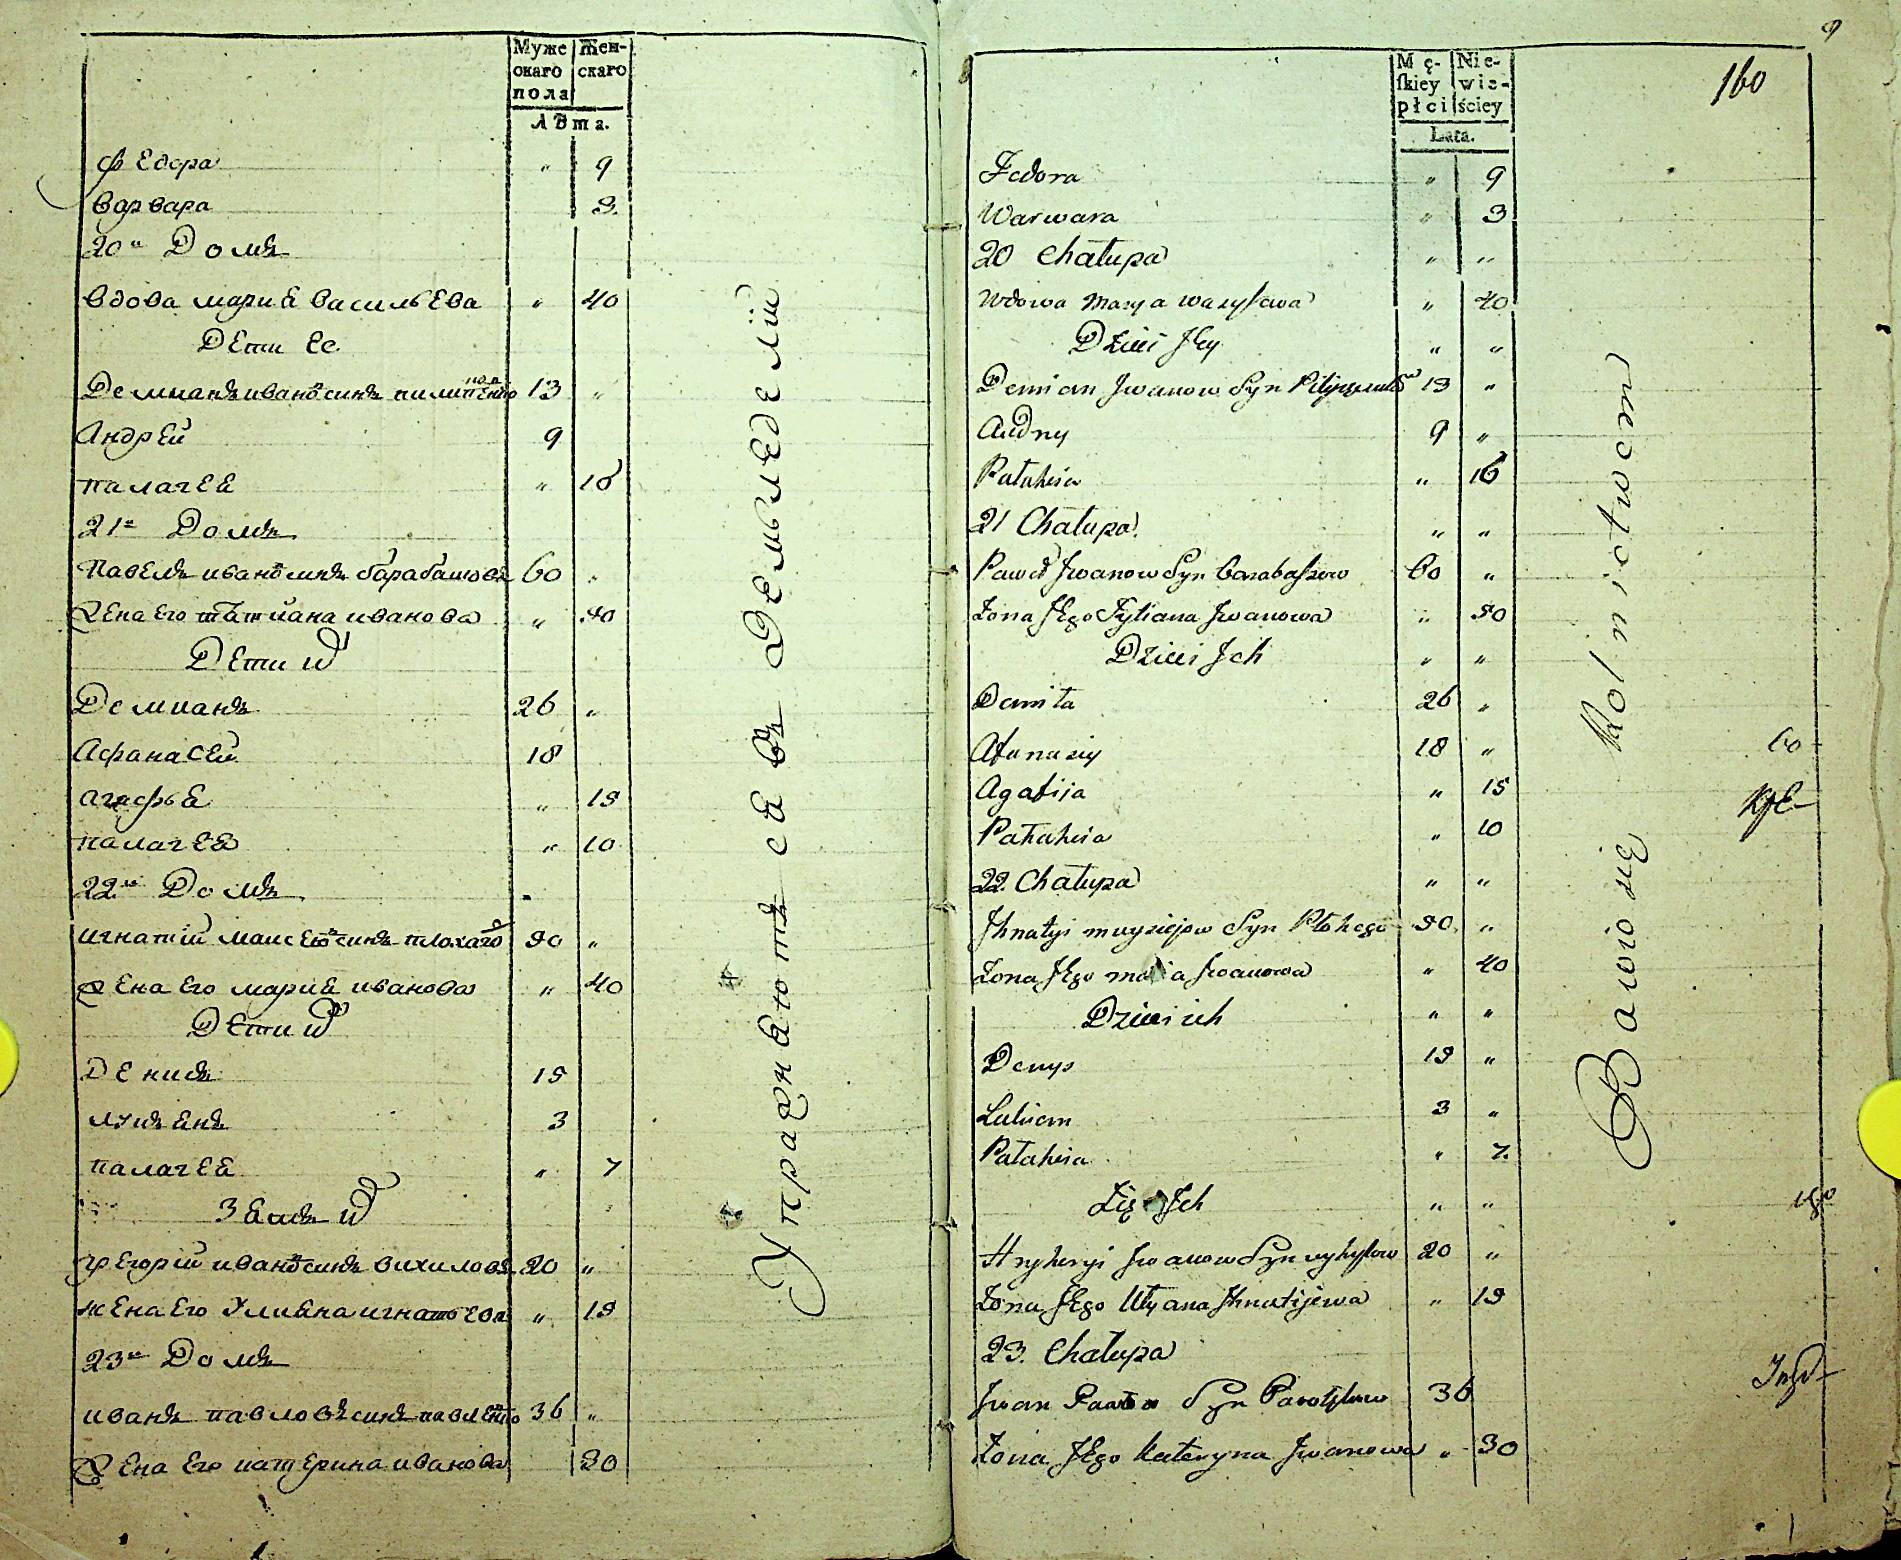 Муже
скаго
пола
Жен-
скаго
Лѣта.
Федора " 9
Варвара 3.
20й Домъ
Вдова Мария Васильева " 40
Дети Ее
Демианъ Ивановъ синъ 13 "
Андрей 9
Палагея " 16
21й Домъ
Павелъ Ивановъ синъ Барабашовъ 60 "
Жена Его Татиана Иванова " 50
Дети их
Демианъ 26 "
Афанасей 18
Агафья " 15
Палагея " 10
22й Домъ
Игнатий синъ Плохаго 50 "
Жена Его Мария Иванова " 40
Дети их
Денисъ 15
Лукянъ 3
Палагея " 7
Зять их
Григорий Ивановъ синъ Вихиловъ 20 "
Жена Его Улияна Игнатьева " 15
23й Домъ
Иванъ Павловъ синъ Павленко 36 "
Жена Его Катерина Иванова 30
Упражняются въ Земледелии
9
160
Mę-
skiey
płci
Nie-
wie-
ściey
Lata.
Fedora " 9
Warwara " 3
20 Chałupa " "
Wdowa Marya Wasylowa " 40
Dzieci Jey " "
Demian Jwanow Syn 13 "
Andry 9 "
Pałahia " 16
21 Chałupa " "
Paweł Jwanow Syn Barabaszow 60 "
Żona Jego Tytiana Jwanowa " 50
Dzieci Jch " "
Demita 26 "
Afanasiy 18 "
Agafija " 15
Pałahia " 10
22. Chałupa " "
Jhnatyi Muysiejow Syn Płohego 50 "
Żona Jego Maria Jwanowa " 40
Dzieci ich " "
Denys 15 "
Lukian 3 "
Pałahia " 7.
Zię Jch " "
Hryhoryi Jwanow Syn Wyhyłow 20 "
Żona Jego Ulyana Jhnatijewa " 15
23. Chałupa
Jwan Pawłow Syn 36
Żona Jego Kateryna Jwanowa " 30
Bawio się Rolnictwem